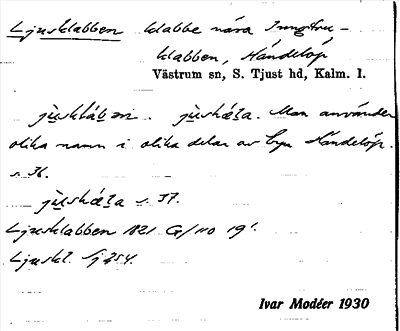 Ljusklabben klabbe nära Jungfru-
klabben, Händelöp
Västrum sn, S. Tjust hd, Kalm. l.
Man använder
olika namn i olika delar av byn Händelöp.
s. 36.
s. 37.
Ljusklabben 1821 G/110 19¹.
Ljuskl. Sj 254.
Ivar Modéer 1930